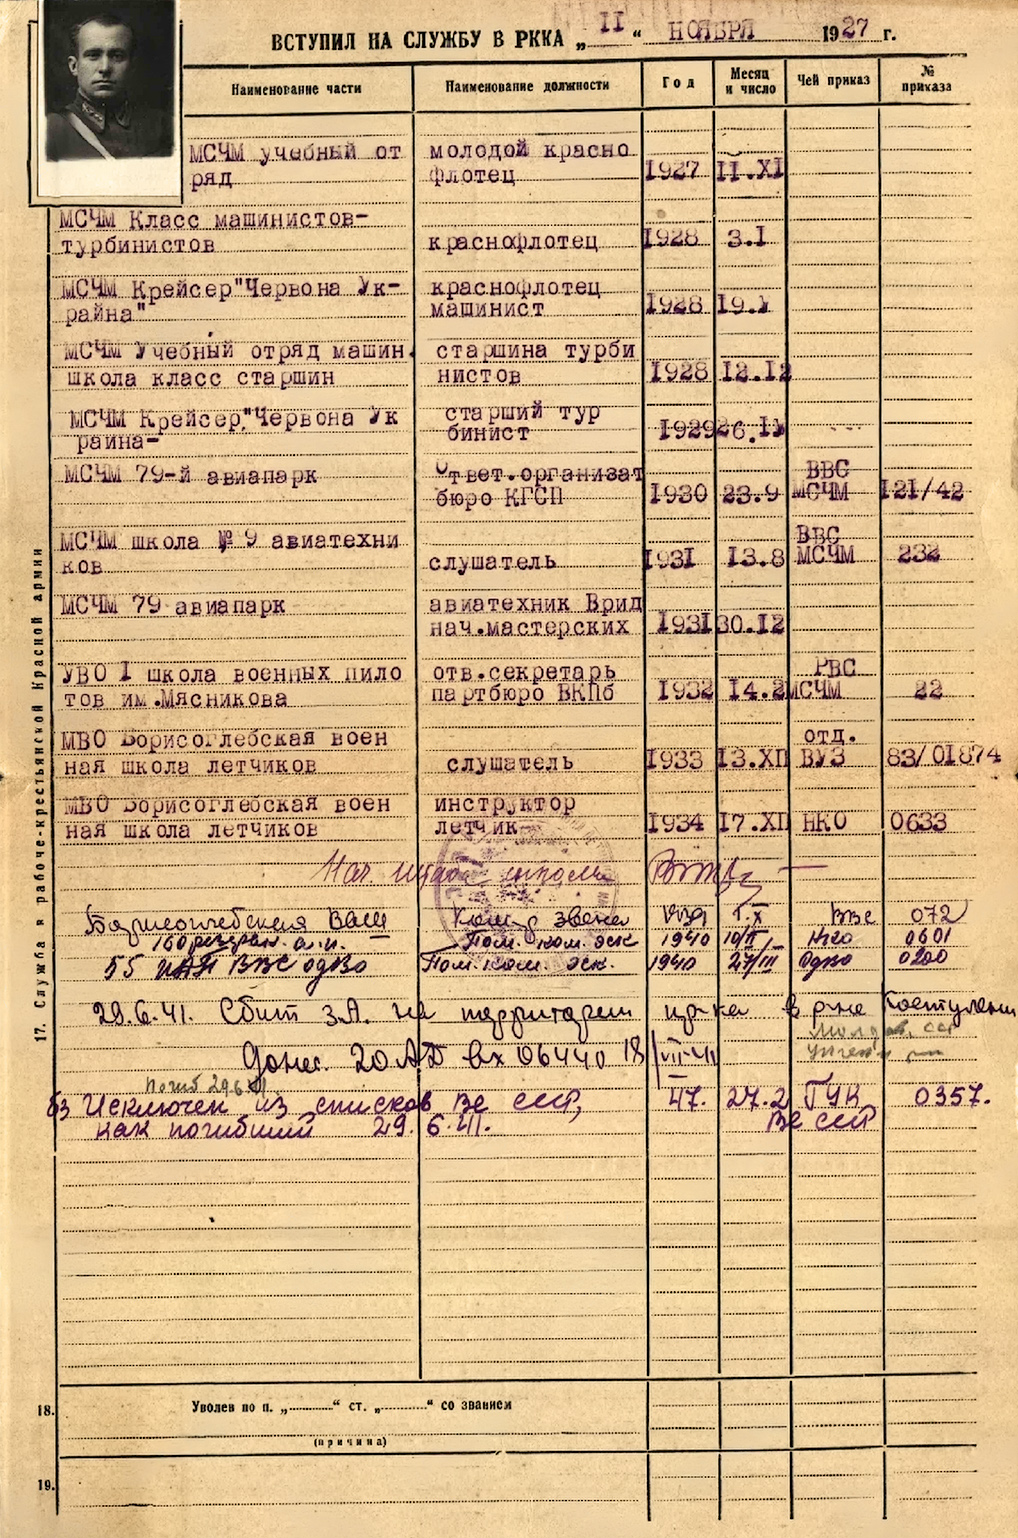 ВСТУПИЛ НА СЛУЖБУ В РККА „ II “ НОЯБРЯ 1927 г.
Наименование части Наименование должности Год Месяц и число Чей приказ № приказа
МСЧМ учебный от молодой красно
ряд флотец 1927 II.XI
МСЧМ Класс машинистов-
турбинистов краснофлотец 1928 3.I
МСЧМ Крейсер"Червона Ук- краснофлотец
райна" машинист 1928 19.
МСЧМ Учебный отряд машин. старшина турби
школа класс старшин нистов 1928 12.12
МСЧМ Крейсер"Червона Ук старший тур
раина- бинист 1929 26.
МСЧМ 79-й авиапарк Ответ.организат ВВС
бюро КГСП 1930 23.9 МСЧМ 121/42
МСЧМ школа № 9 авиатехни ВВС
ков слушатель 1931 13.8 МСЧМ 232
МСЧМ 79 авиапарк авиатехник Врид
нач.мастерских 1931 30.12
УВО I школа военных пило отв.секретарь РВС
тов им.Мясникова партбюро ВКПб 1932 14.2 МСЧМ 22
МВО Борисоглебская воен отд.
ная школа летчиков слушатель 1933 13.XII ВУЗ 83/01874
МВО Борисоглебская воен инструктор
ная школа летчиков летчик 1934 17.XII НКО 0633
Нач штаба школы
Борисоглебская ВАШ Команд звена I.X ВВС 072
160 резервн. а.п. Пом. ком. эск 1940 НКО 0601
55 ИАП ВВС ОдВО Пом. ком. эск. 1940 27/III ОдВО 0200
29.6.41. Сбит З.А. на территории пр-ка в р-не
Молдав. ССР
Донес. 20 АД вх 06440 18/VII-41
Погиб 29.6.41
63 Исключен из списков ВС СССР, 47. 27.2 ГУК 0357.
как погибший 29.6.41. ВС СССР
17. Служба в рабоче-крестьянской Красной армии
18. Уволен по п. „ “ ст. „ “ со званием
(причина)
19.